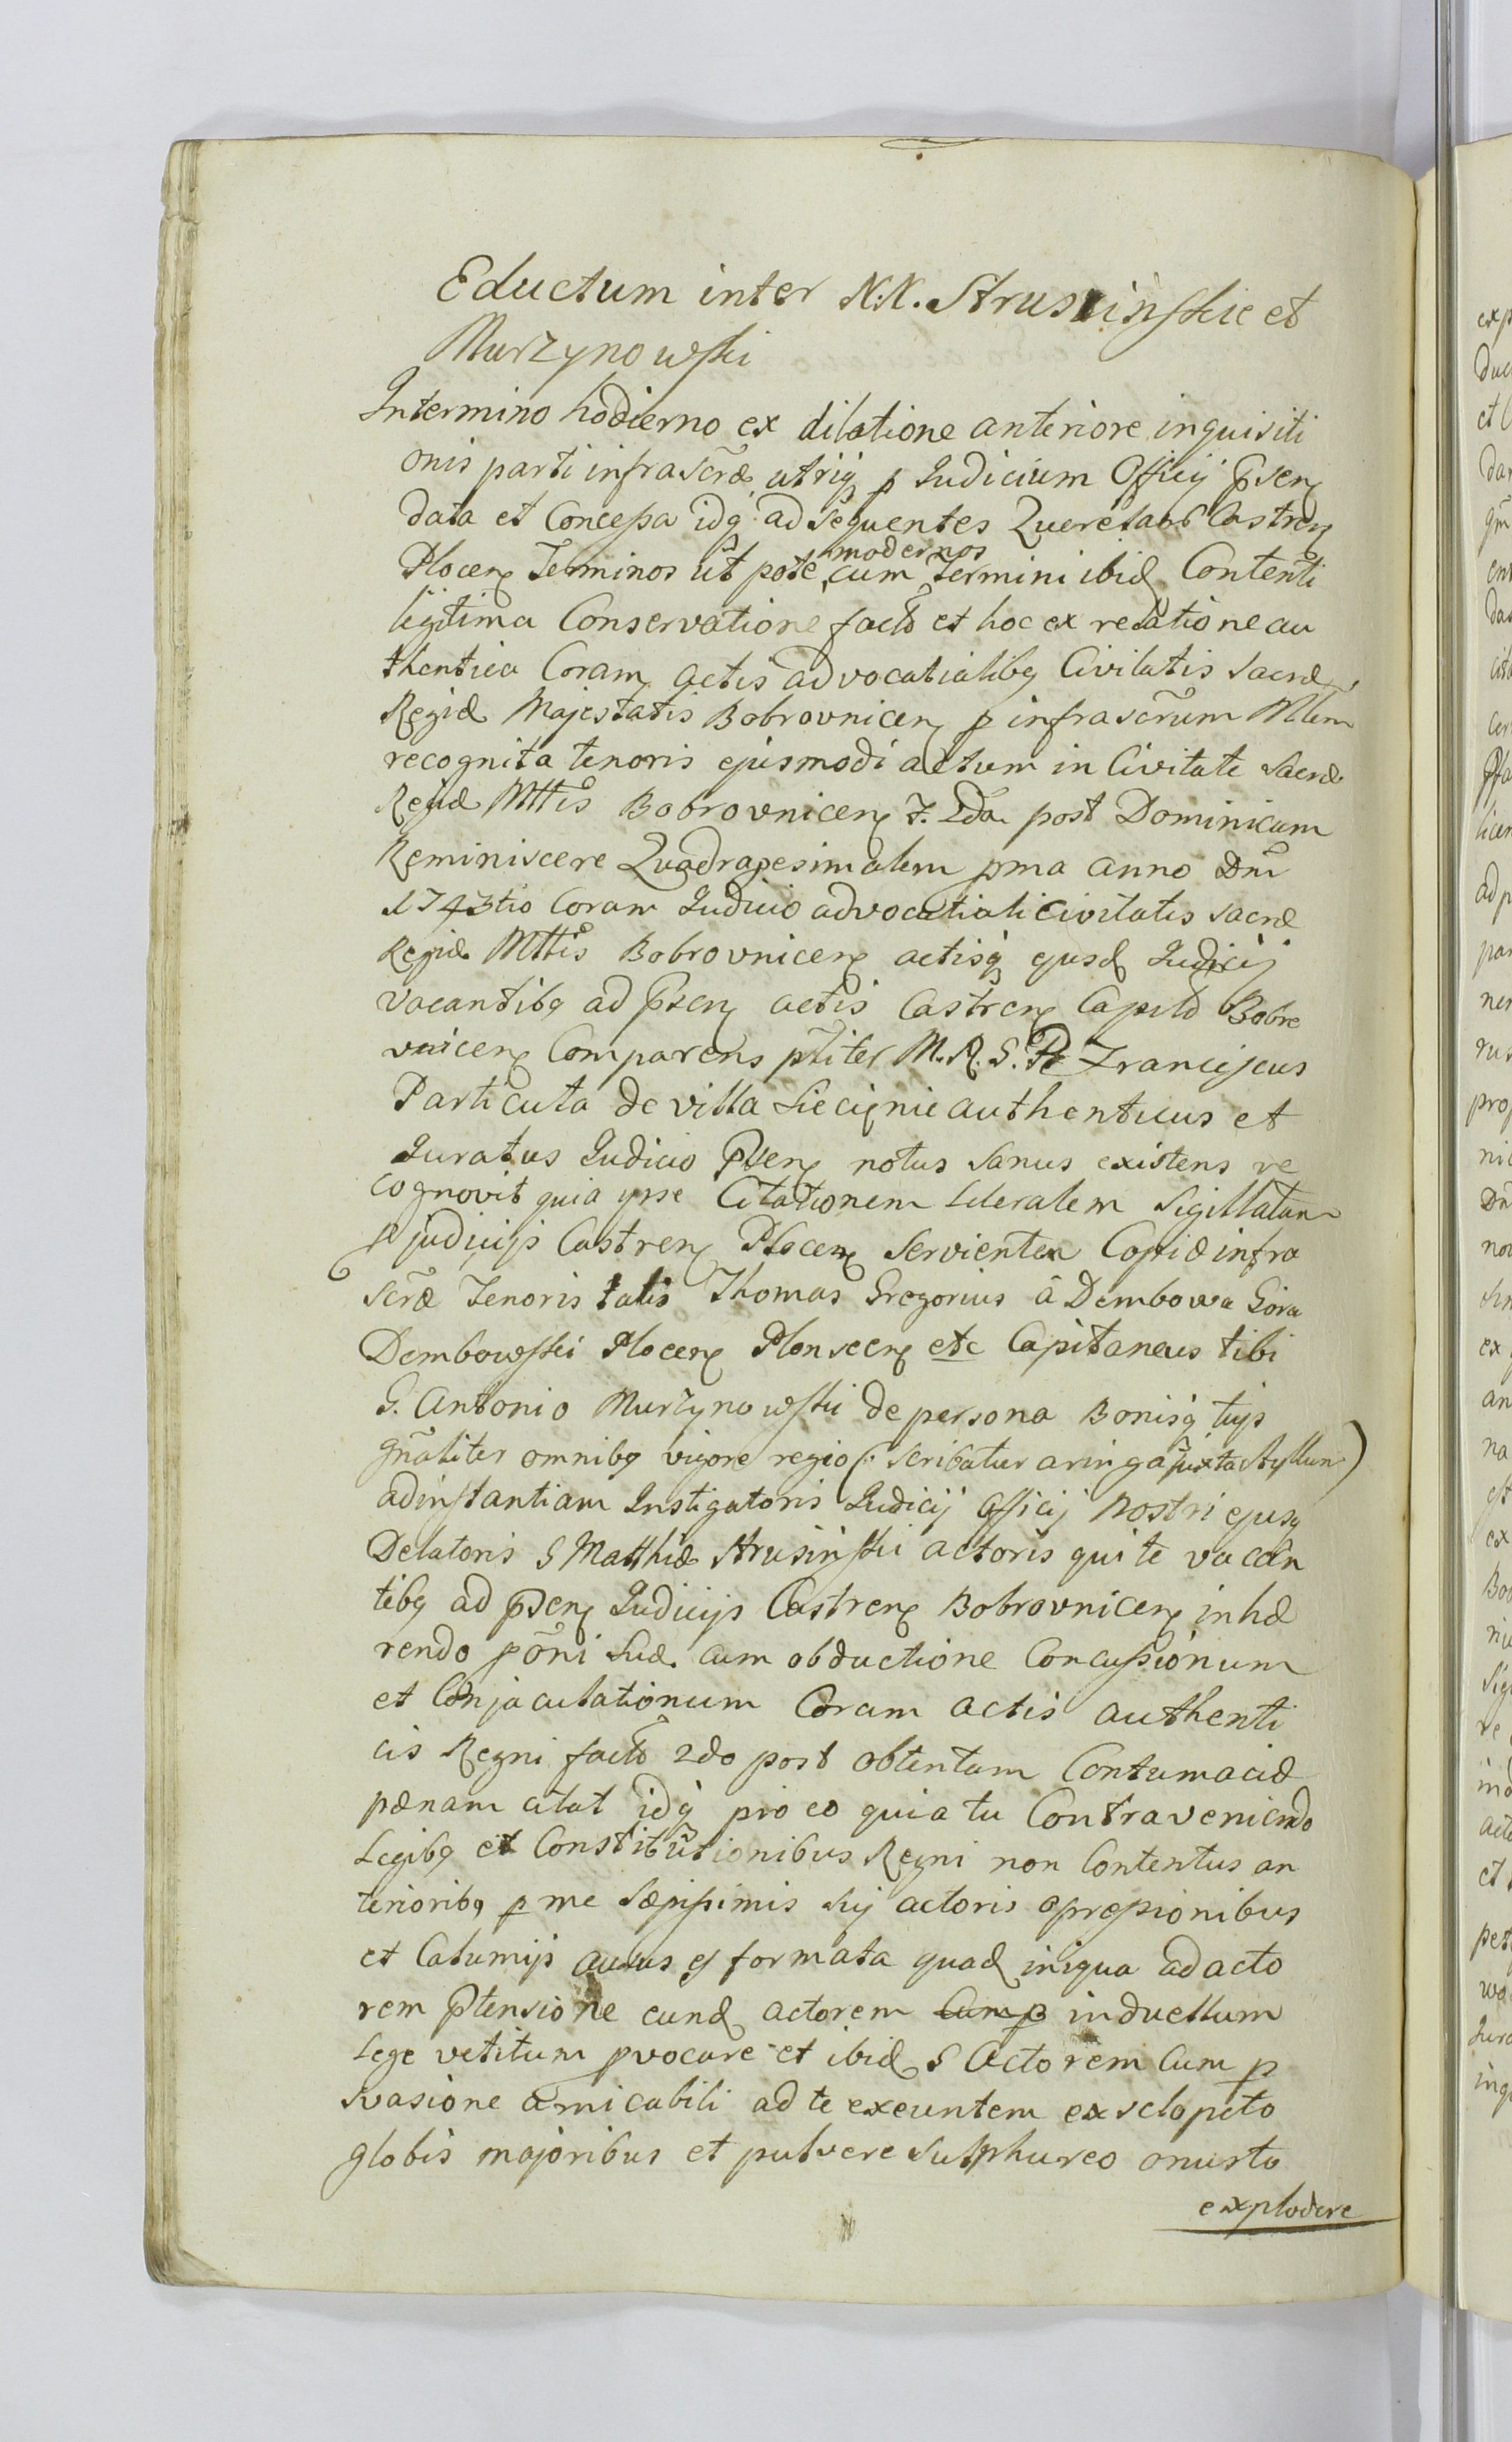 Eductum inter N.N. Strusinskie et
Murzynowski
Intermino hodierno ex dilatione anteriore inquisiti
onis parti infrascrae utriq p Iudicium Officij Psen
data et Concessa idq ad sequentes Querelar Castren
Plocen Terminos ut pote modernos cum Termini ibid Contenti
ligitima Conservatione facto et hoc ex relatione au
thentica Coram actis advocatialibq Civitatis Sacrae
Regiae Majestatis Bobrovnicen p infrascrum Mlem
recognita tenoris ejusmodi actum in Civitate Sacrae
Regiae Mttis Bobrovnicen F. 2da post Dominicam
Reminiscere Quadragesimalem pma anno Dni
1743tio Coram Iudicio advocatiali Civitatis sacrae
Regiae Mttis Bobrovnicen actisq ejusd Iudicij
vacantibq ad Psen actis Castren Capild Bobro
vnicen Comparens pliter M.R.S. Pr Franciscus
Particuta de villa Siecignie authenticus et
Iuratus Iudicio Psen notus sanus existens re
cognovit quia ipse Citationem Literalem Sigillatam
p judicijs Castren Plocen Servientem Copiae infra
scrae Tenoris talis Thomas Gregorius a Dembowa Gora
Dembowski Plocen Plonscen etc Capitaneus tibi
G. Antonio Murzynowski de persona Bonisq tuis
gnaliter omnibq vigore regio (: scribatur aringa juxta styllum)
adinstantiam Instigatoris Iudicij Officij Nostri ejusq
Delatoris G Matthiae Strusinski actoris qui te vacan
tibq ad psen Iudicijs Castren Bobrovnicen inhae
rendo pōni Suae cum obductione Concussionum
et Conjaculationum Coram actis authenti
cis Regni facto 2do post obtentam Contumaciae
paenam citat idq pro eo quia tu Contraveniendo
Legibq et Constitutionibus Regni non Contentus an
terioribq p me saepissimis sui actoris opressionibus
et Calumijs ausus es formata quad iniqua ad acto
rem Ptensione eund actorem Cum p induellum
Lege vetitum pvocare et ibid G Actorem Cum p
svasione amicabili ad te exeuntem ex sclopeto
globis majoribus et pulvere sulphureo onusto
explodere